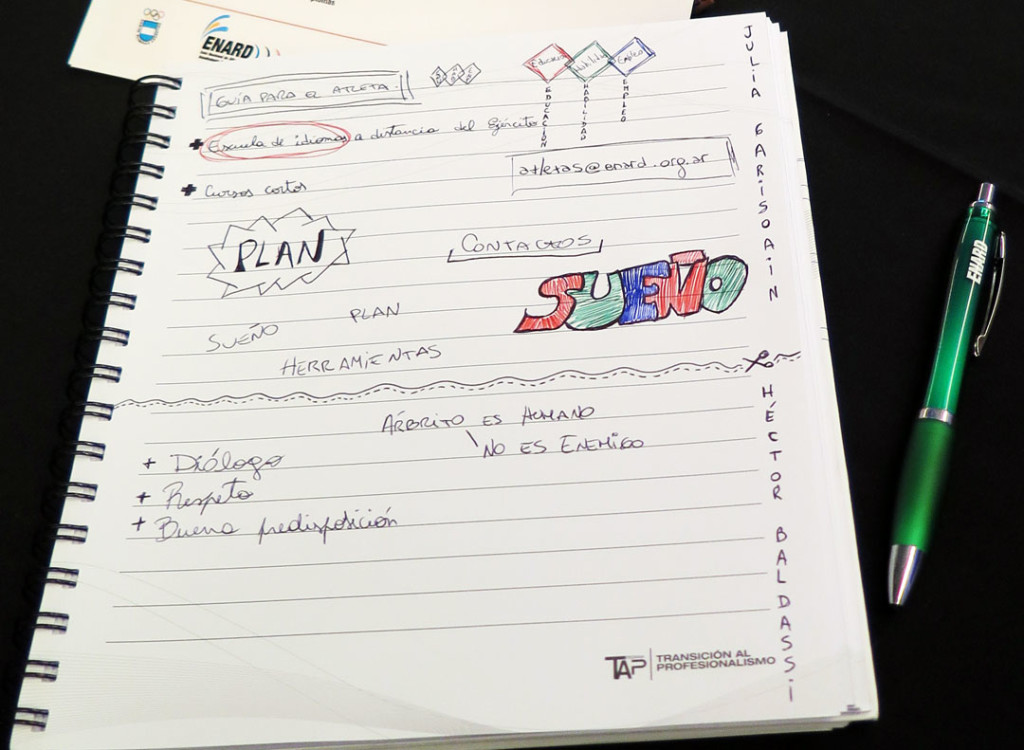 ENARD
GUÍA PARA EL ATLETA.
Educación
Habilidad
Empleo
EDUCACIÓN
HABILIDAD
EMPLEO
+ Escuela de idiomas a distancia del Ejército
atletas@enard.org.ar
+ Cursos cortos
PLAN
CONTACTOS
SUEÑO
SUEÑO PLAN
HERRAMIENTAS
ÁRBRITO ES HUMANO
NO ES ENEMIGO
+ Diálogo
+ Respeto
+ Buena predisposición
JULIA GARISOAIN
HÉCTOR BALDASSI
TAP TRANSICIÓN AL
PROFESIONALISMO
ENARD